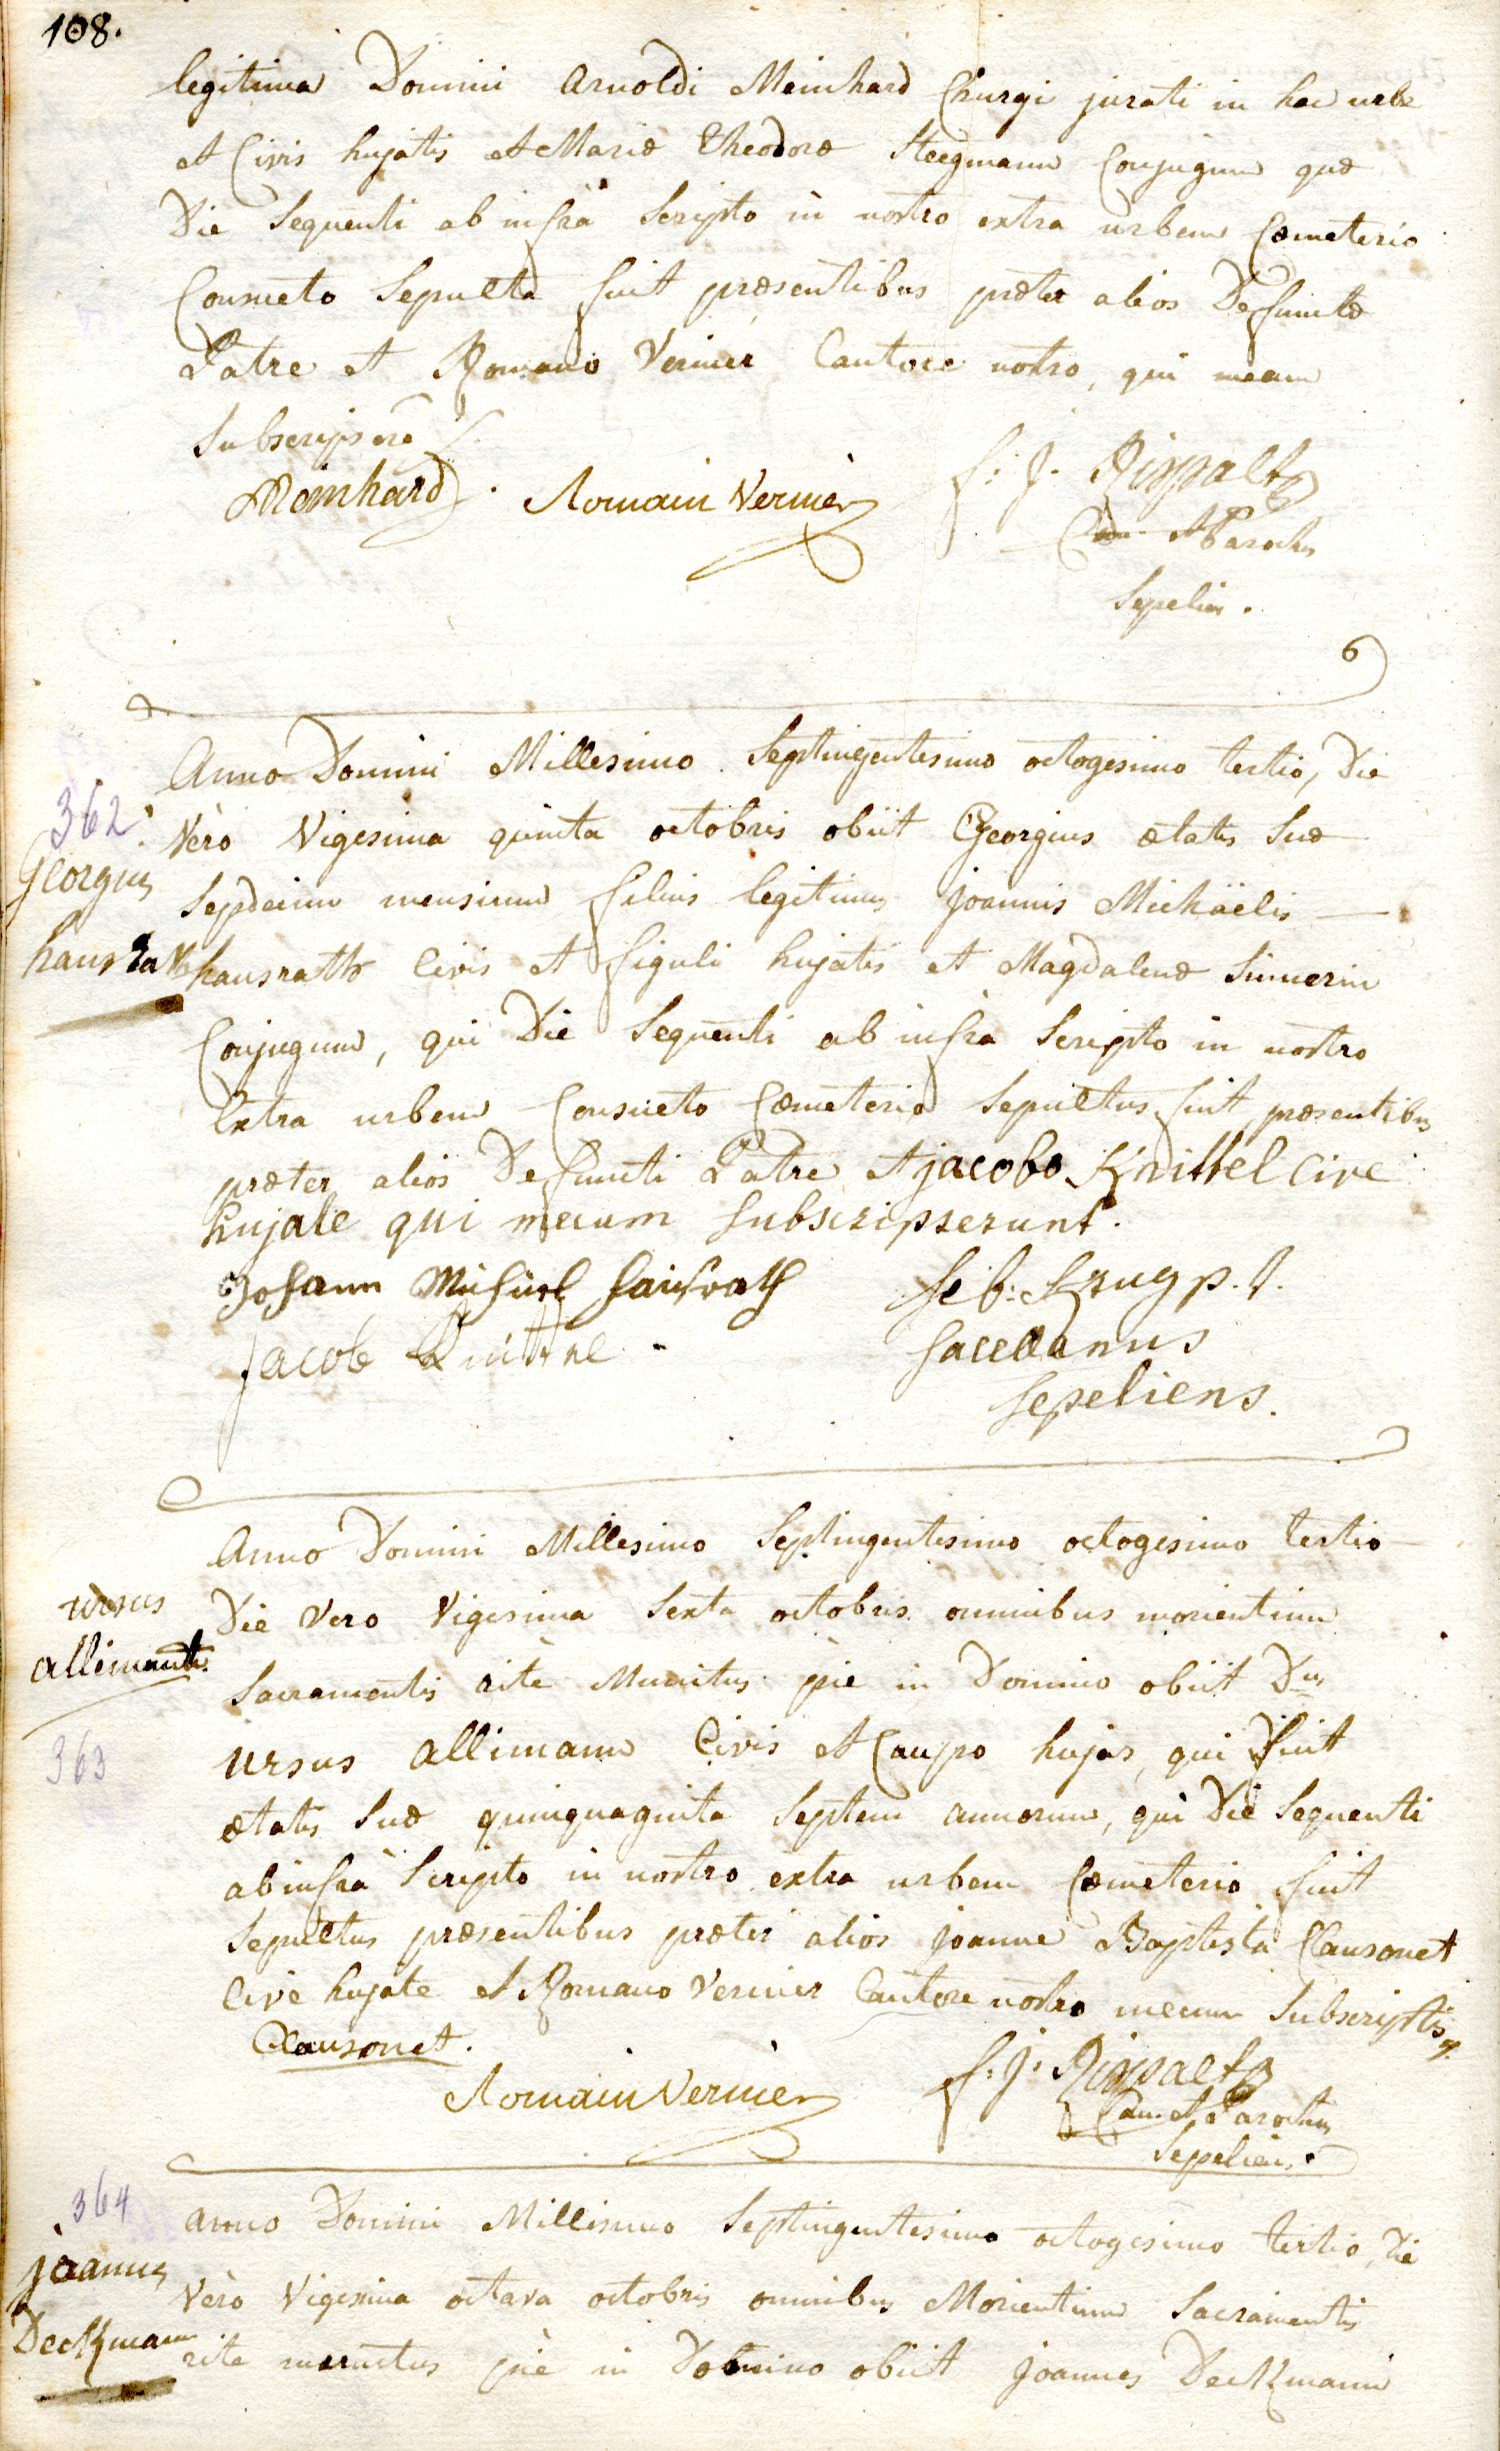 108.
legitima Domini Arnoldi Meinhard Chirurgi jurati in hac urbe
et Civis hujatis et Mariæ Theodoræ Steegmann Conjugum quæ
Die Sequenti ab infrà Scripto in nostro extra urbem Cœmeterio
Consueto Sepulta fuit præsentibus præter alios Defunctæ
Patre et Romano Vernier Cantore nostro, qui mecum
Subscripsere
Meinhard. Romain Vernier f: J. Rispalt
Can. et Parochus
Sepeliens.
Anno Domini Millesimo Septingentesimo octogesimo tertio, Die
362
Vero Vigesima quinta octobris obiit Georgius ætatis Suæ
Georgius
Sepdecim mensium filius legitimus Joannis Michaëlis
hausrath
hausrath Civis et figuli hujatis et Magdalenæ Simmerin
Conjugum, qui Die Sequenti ab infrà Scripto in nostro
Extra urbem Consueto Cœmeterio Sepultus fuit præsentibus
præter alios Defuncti Patre et jacobo Knittel Cive
hujate qui mecum subscripserunt.
Johann Michael Hausrath Seb: Krug p. t.
Jacob Knittel Sacellanus
Sepeliens.
Anno Domini Millesimo Septingentesimo octogesimo tertio
ursus
Die Vero Vigesima Sexta octobris omnibus morientium
allimann.
Sacramentis ritè Munitus piè in Domino obiit Dnus
363
ursus allimann Civis et Caupo hujas, qui fuit
ætatis Suæ quinquaginta Septem annorum, qui Die Sequenti
ab infrà Scripto in nostro extra urbem Cœmeterio fuit
Sepultus præsentibus præter alios Joanne Baptista Clausonet
Cive hujate et Romano Vernier Cantore nostro mecum Subscriptis
Clausonet.
Romain Vernier f: J. Rispalt
Can. et Parochus
Sepeliens.
364
anno Domini Millesimo Septingentesimo octogesimo tertio, Die
joannes
Vero Vigesima octava octobris omnibus Morientium Sacramentis
Deckmann
rite munitus piè in Domino obiit Joannes Deckmann